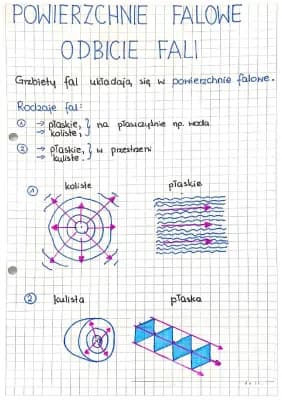 POWIERZCHNIE FALOWE
ODBICIE FALI
Grzbiety fal układają się w powierzchnie falowe.
Rodzaje fal:
① → płaskie, } na płaszczyźnie np. woda
→ koliste,
② → płaskie, } w przestrzeni
→ kuliste.
① koliste płaskie
② kulista płaska